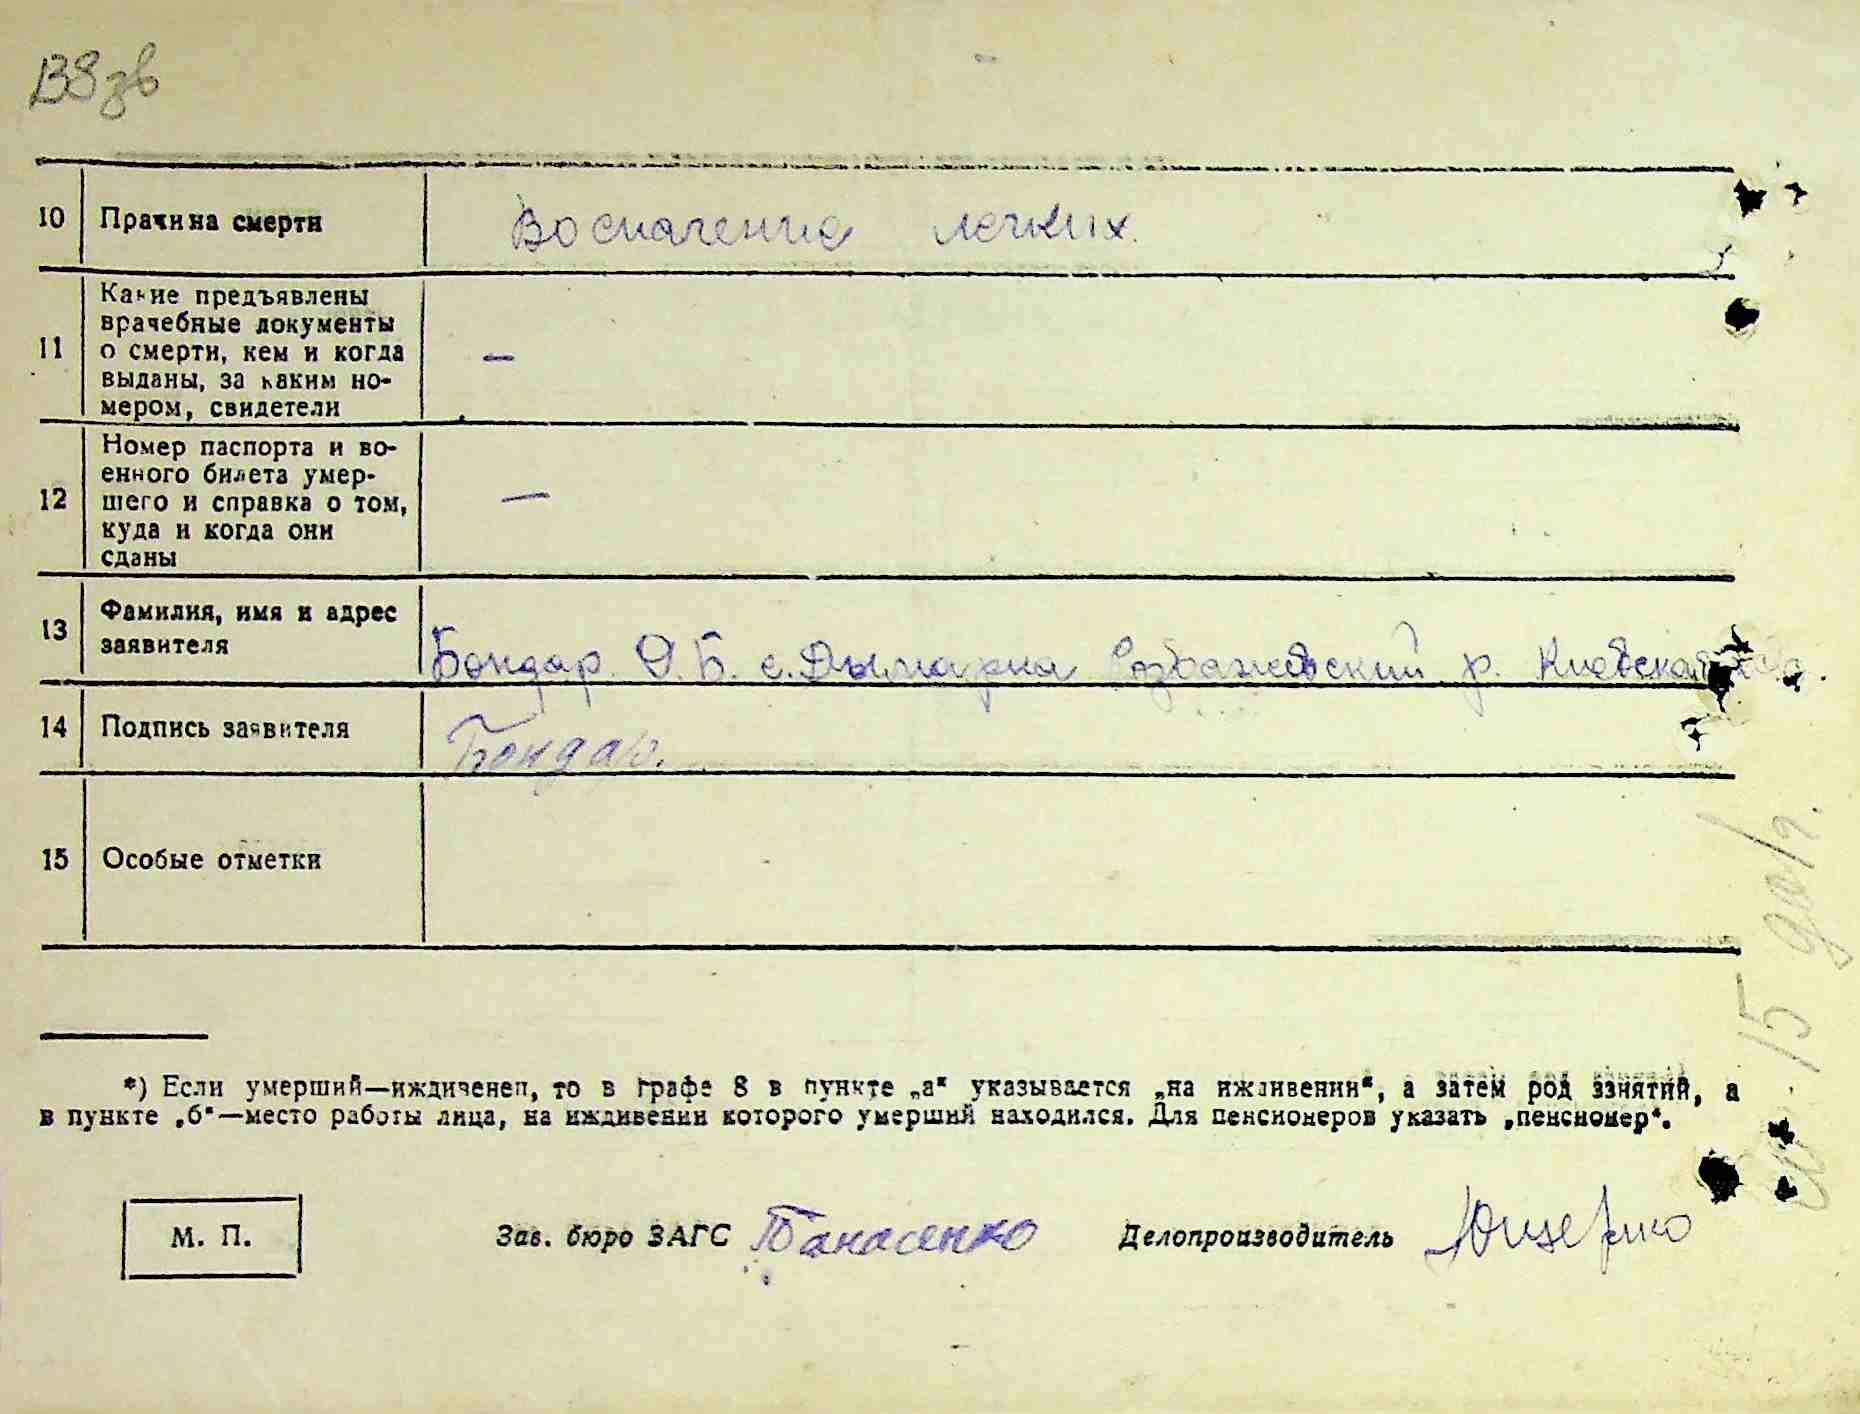 10 Прачина смерти Воспаление легких.
11 Какие предъявлены
врачебные документы
о смерти, кем и когда
выданы, за каким но-
мером, свидетели —
12 Номер паспорта и во-
енного билета умер-
шего и справка о том,
куда и когда они
сданы —
13 Фамилия, имя и адрес
заявителя Бондар О. Б. с. Дымарка р. Киевская
14 Подпись заявителя Бондар.
15 Особые отметки
*) Если умерший—иждиченеп, то в графе 8 в пункте „а" указывается „на иждивении", а затем род занятий, а
в пункте „б"—место работы лица, на иждивении которого умерший находился. Для пенсионеров указать „пенсионер".
М. П. Зав. бюро ЗАГС Панасенко Делопроизводитель
15